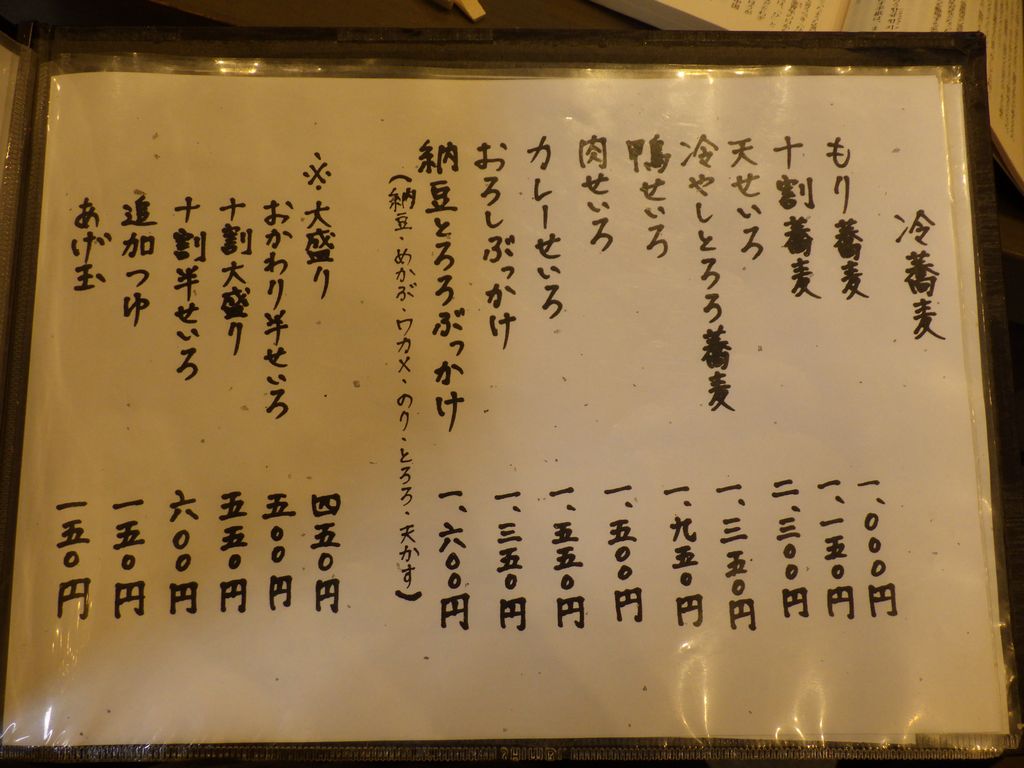 冷蕎麦
もり蕎麦 一、〇〇〇円
十割蕎麦 一、一五〇円
天せいろ 二、三〇〇円
冷やしとろろ蕎麦 一、三五〇円
鴨せいろ 一、九五〇円
肉せいろ 一、五〇〇円
カレーせいろ 一、五五〇円
おろしぶっかけ 一、三五〇円
納豆とろろぶっかけ 一、六〇〇円
(納豆・めかぶ・ワカメ・のり・とろろ・天かす)
※大盛り 四五〇円
おかわり半せいろ 五〇〇円
十割大盛り 五五〇円
十割半せいろ 六〇〇円
追加つゆ 一五〇円
あげ玉 一五〇円